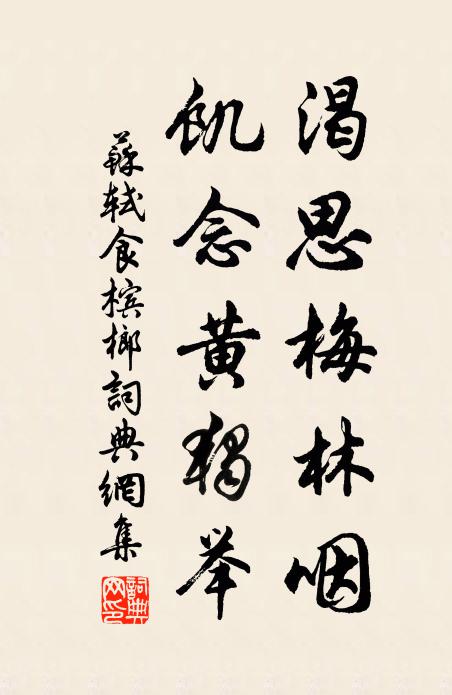 渴思梅林咽
飢念黄獨举
蘇軾食檳榔詞典網集
詞典網印